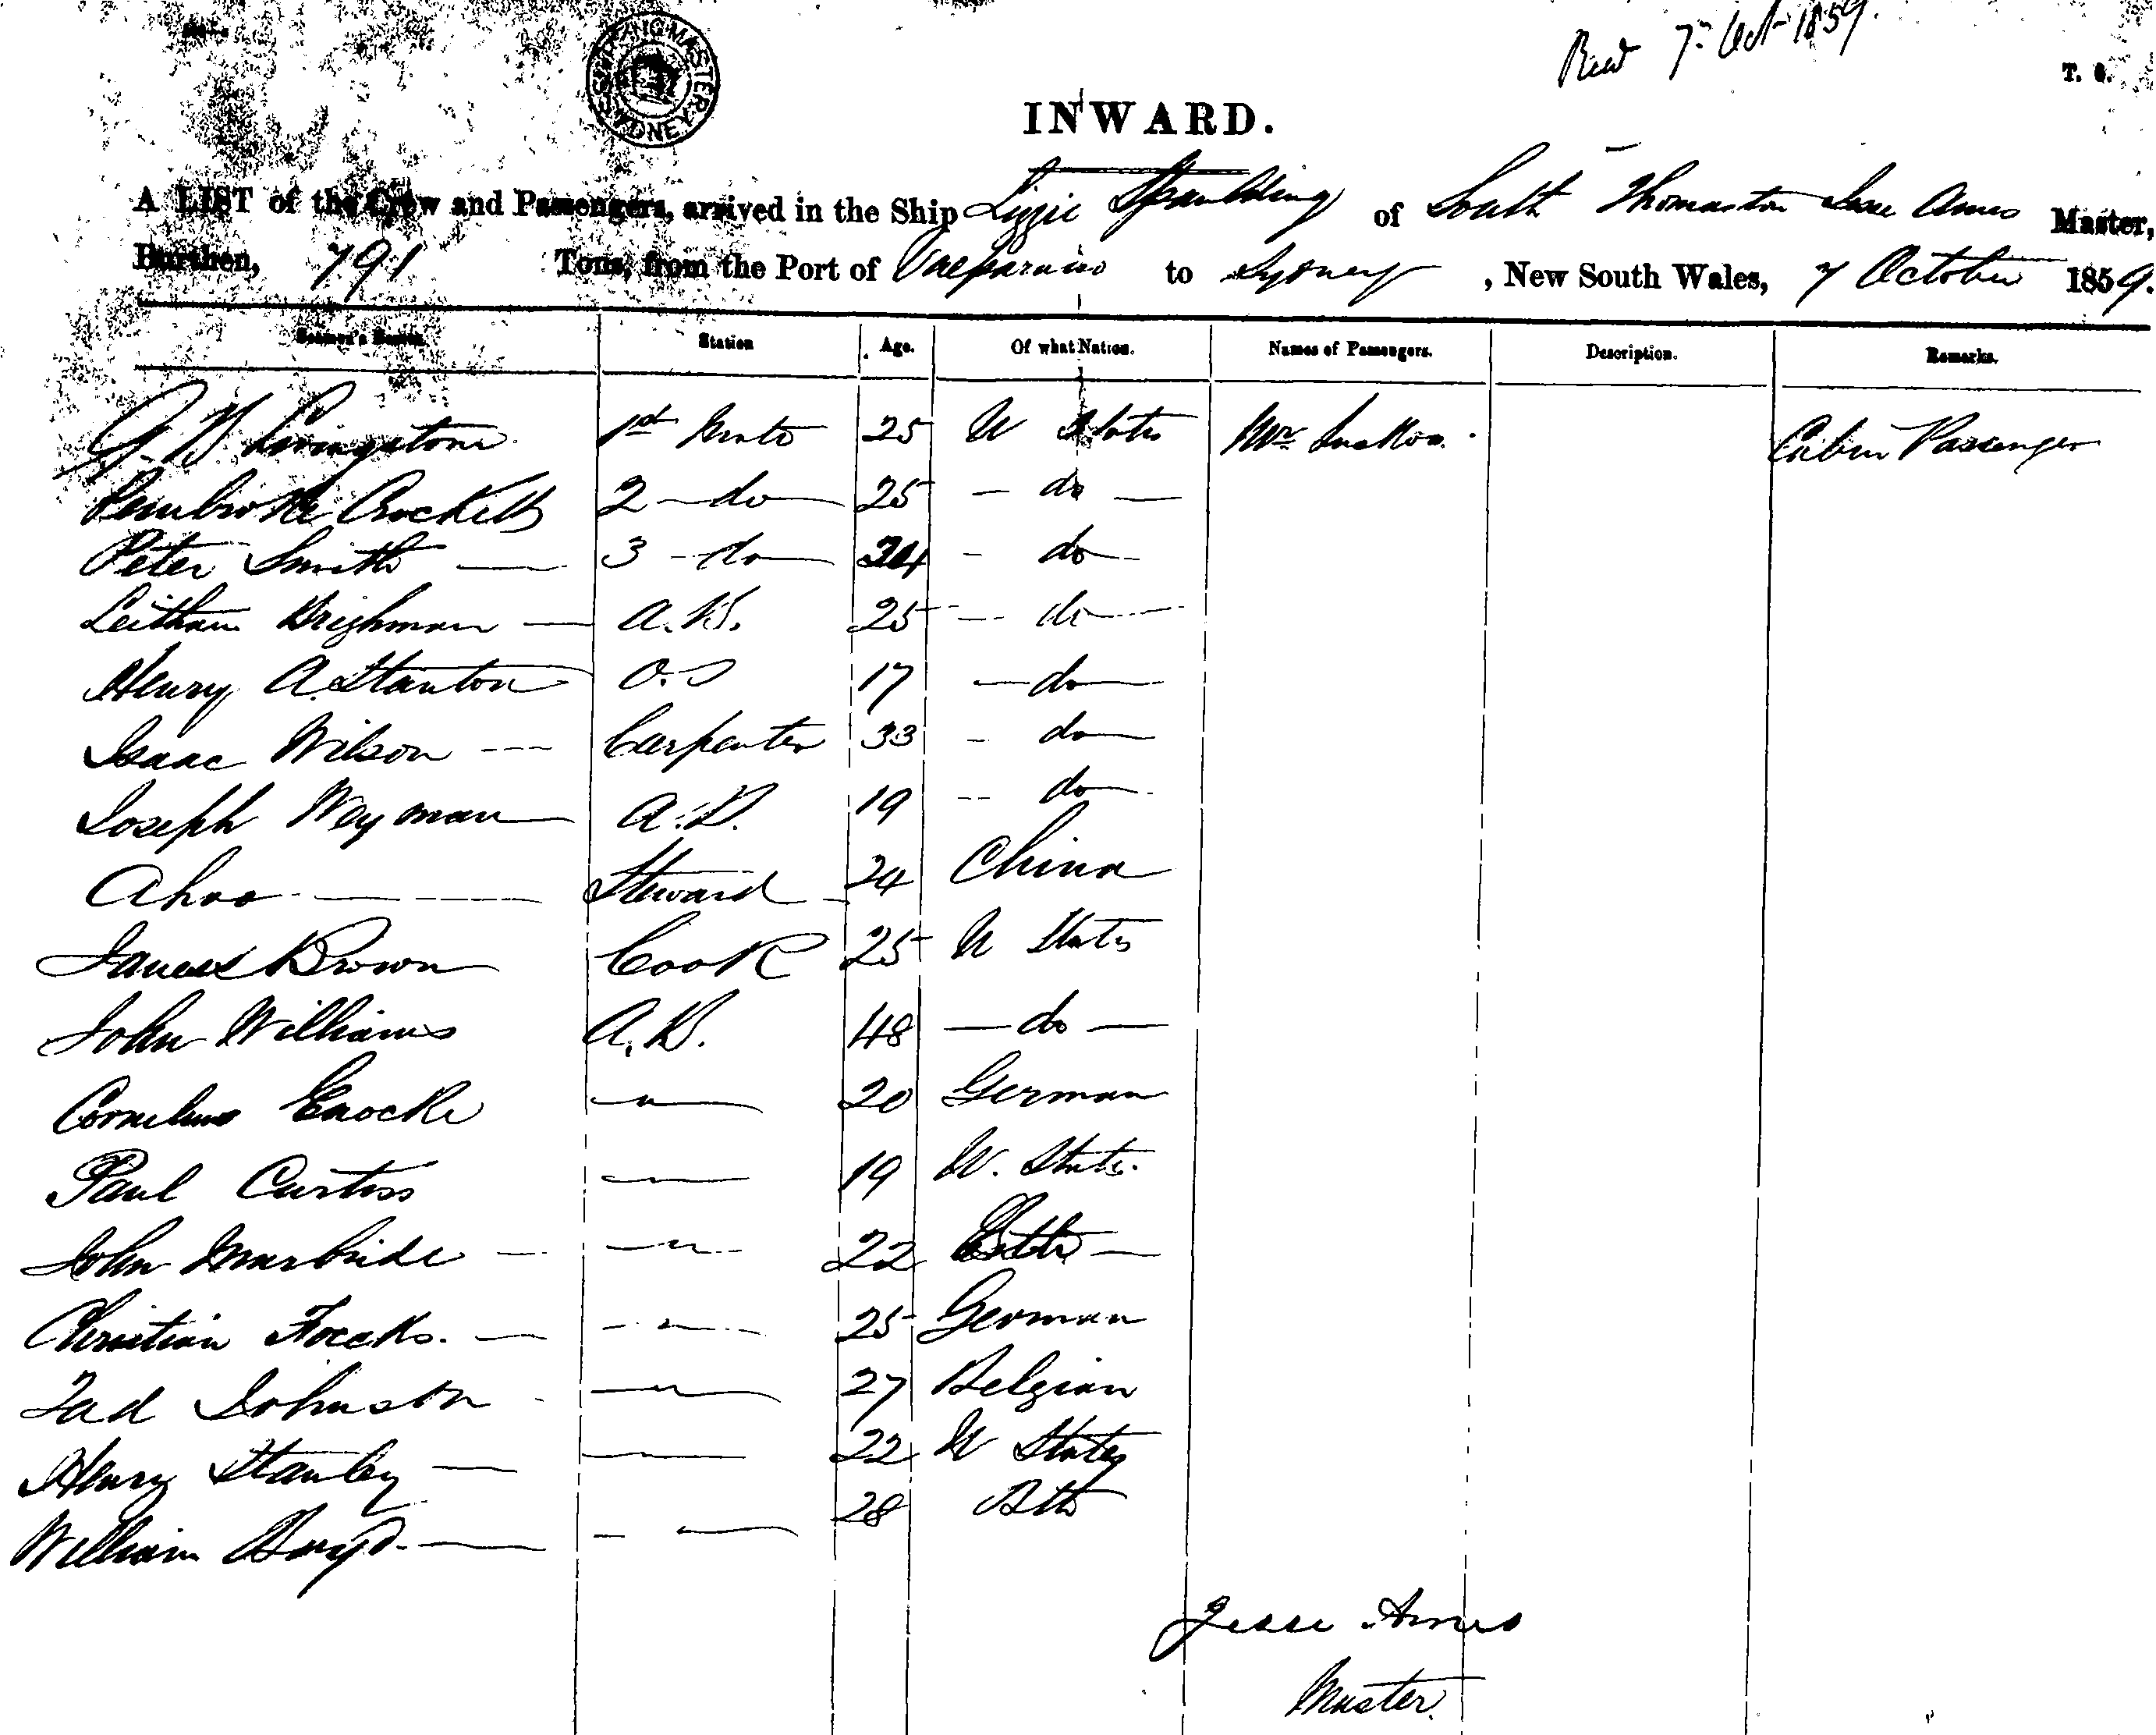 Recd 7th Oct 1859.
SHIPPING MASTER SYDNEY
T. 6.
INWARD.
A LIST of the Crew and Passengers, arrived in the Ship Lizzie Spaulding of South Thomaston Jesse Ames Master,
Burthen, 791 Tons, from the Port of Valparaiso to Sydney, New South Wales, 7 October 1859.
Seamen's Names. Station Age. Of what Nation. Names of Passengers. Description. Remarks.
Livingstone 1st Mate 25 U States Mr Cabin Passenger
Pembroke Crockett 2 - do 25 - do -
Peter Smith 3 - do - do
Brighman A.B. 25 - do
Henry A. Stanton O.S 17 - do
Isaac Wilson Carpenter 33 - do
Joseph Weyman A.B. 19 - do
Ahoo Steward 24 China
James Brown Cook 25 U States
John Williams A.B. 48 - do -
Cornelius 20 German
Paul Curtiss 19 U. States
John 22
Christian 25 German
Johnson 27 Belgian
Henry Stanley 22 U States
William Boyd 28
Jesse Ames
Master.